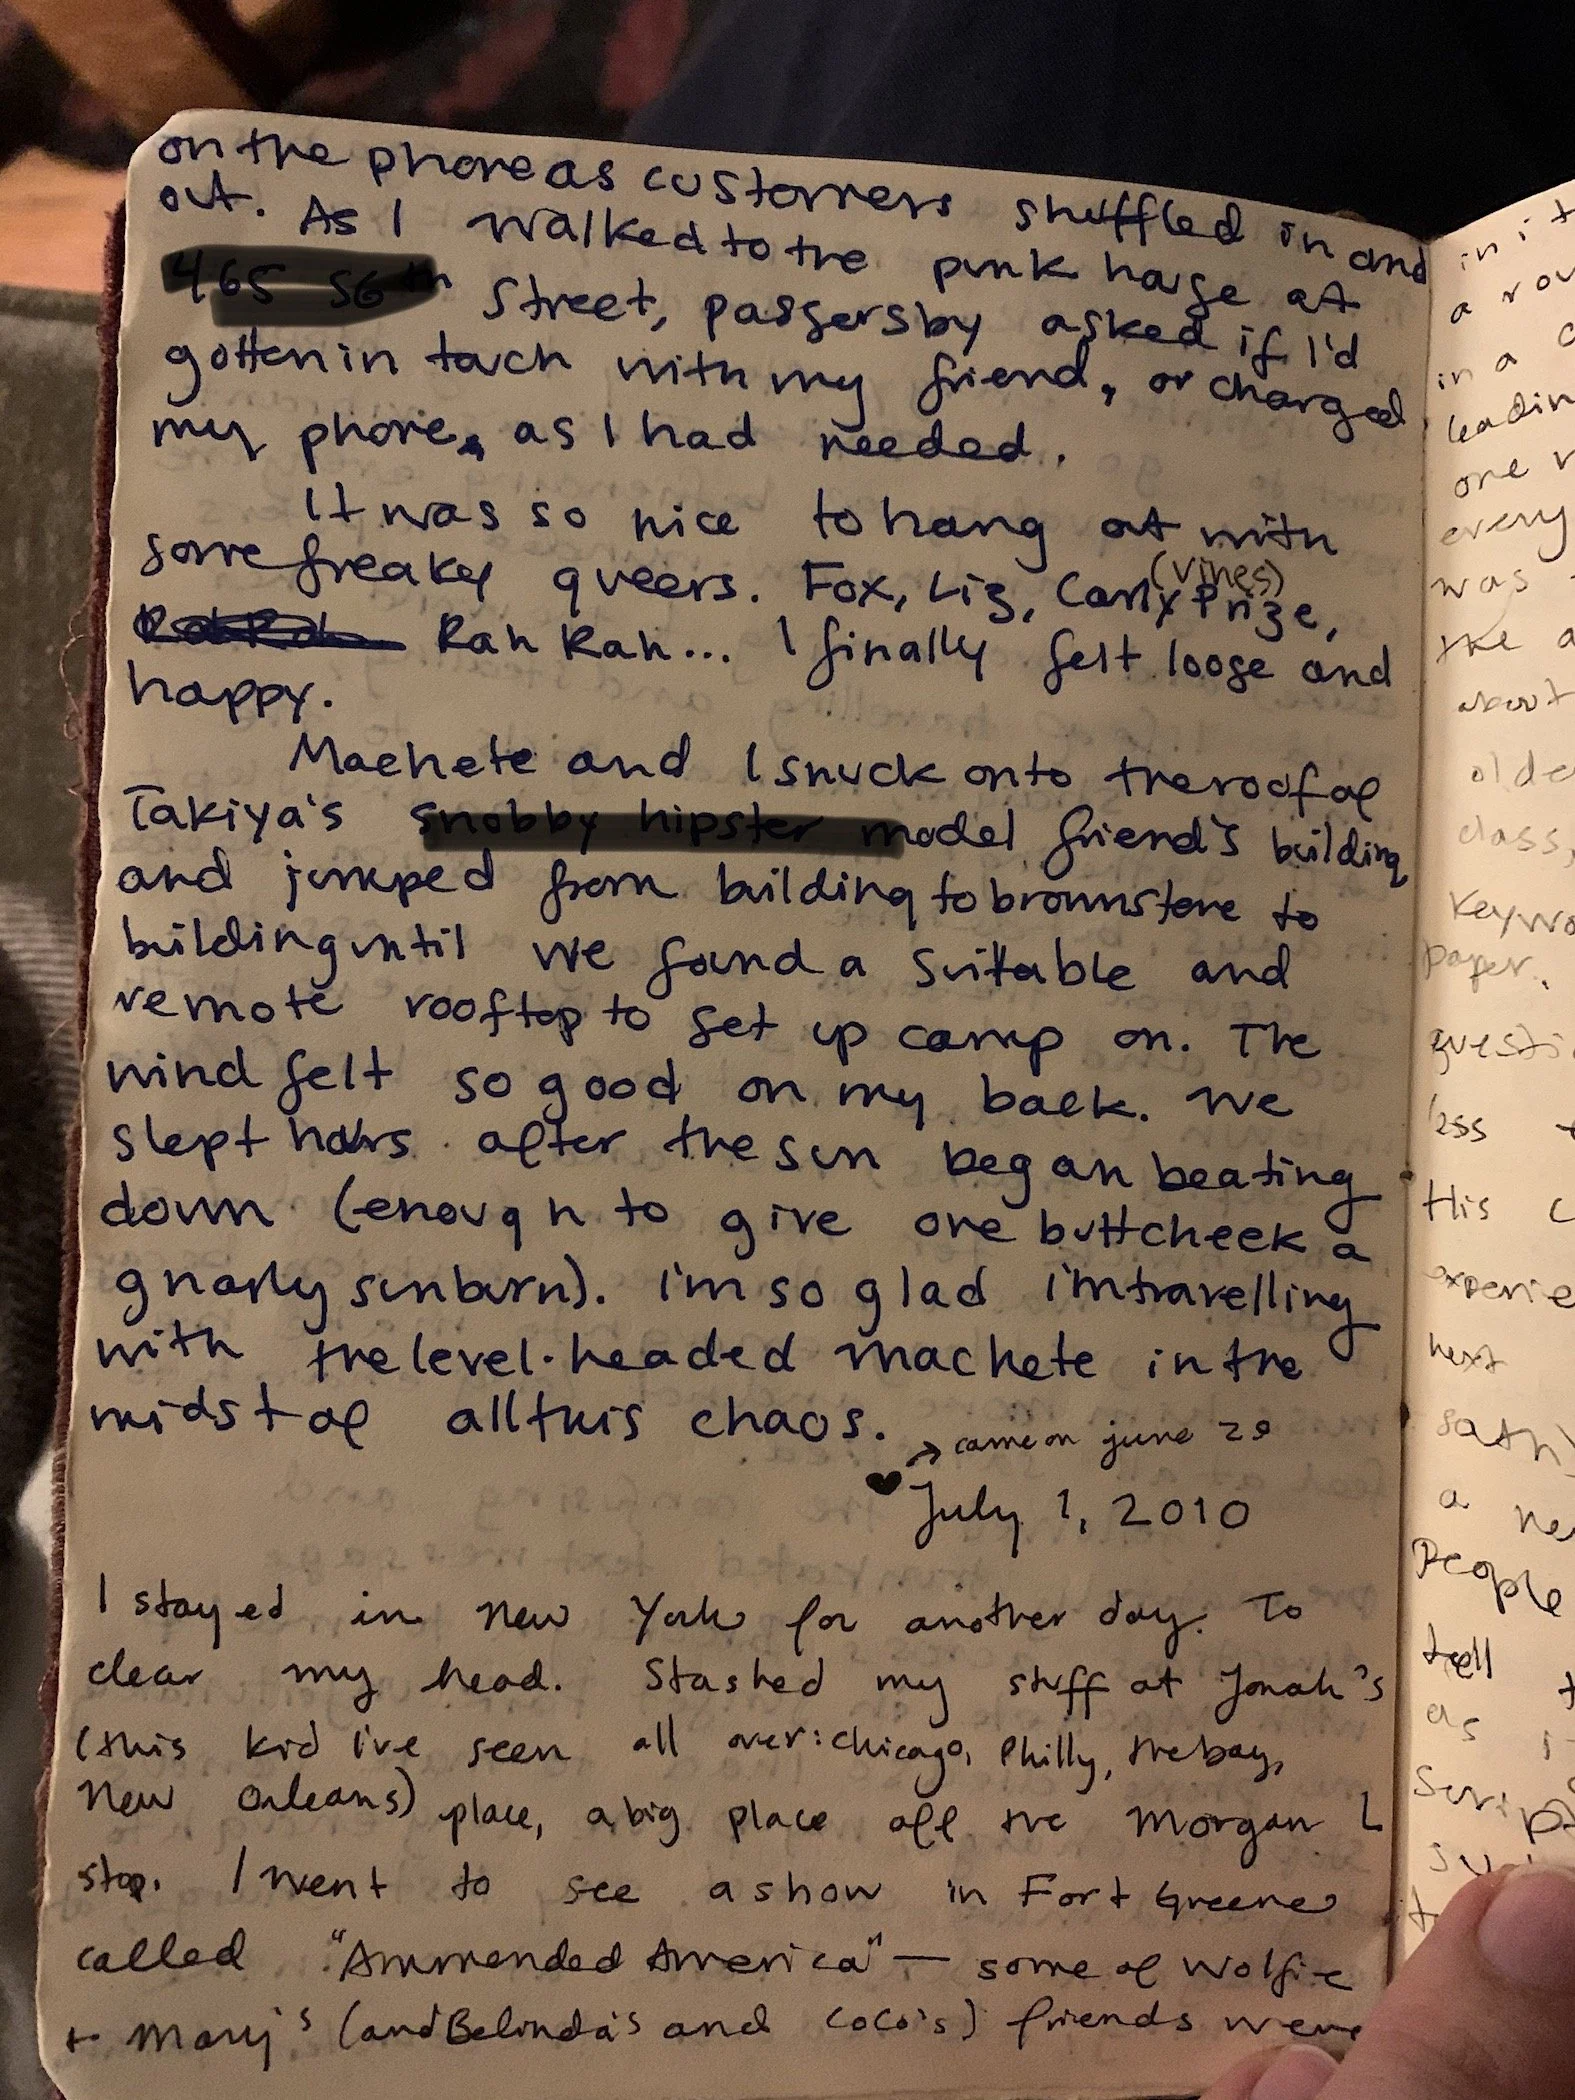 on the phone as customers shuffled in and
out. As I walked to the punk house at
Street, passersby asked if I'd
gotten in touch with my friend, or charged
my phone, as I had needed.
It was so nice to hang out with
some freaky queers. Fox, Liz, Carly (Vines) Prize,
Rah Rah... I finally felt loose and
happy.
Machete and I snuck onto the roof of
Takiya's model friend's building
and jumped from building to brownstone to
building until we found a suitable and
remote rooftop to set up camp on. The
wind felt so good on my back. We
slept hours after the sun began beating
down (enough to give one buttcheek a
gnarly sunburn). I'm so glad I'm travelling
with the level-headed machete in the
midst of all this chaos.
→ came on june 29
♥ July 1, 2010
I stayed in New York for another day. To
clear my head. Stashed my stuff at Jonah's
(this kid I've seen all over: Chicago, Philly, the bay,
New Orleans) place, a big place off the Morgan L
stop. I went to see a show in Fort Greene
called "Ammended America" — some of Wolfie
+ Mary's (and Belinda's and CoCo's) friends were
in it
a
in a
one
every
was
the a
about
class,
paper.
His
next
a
People
tell
as